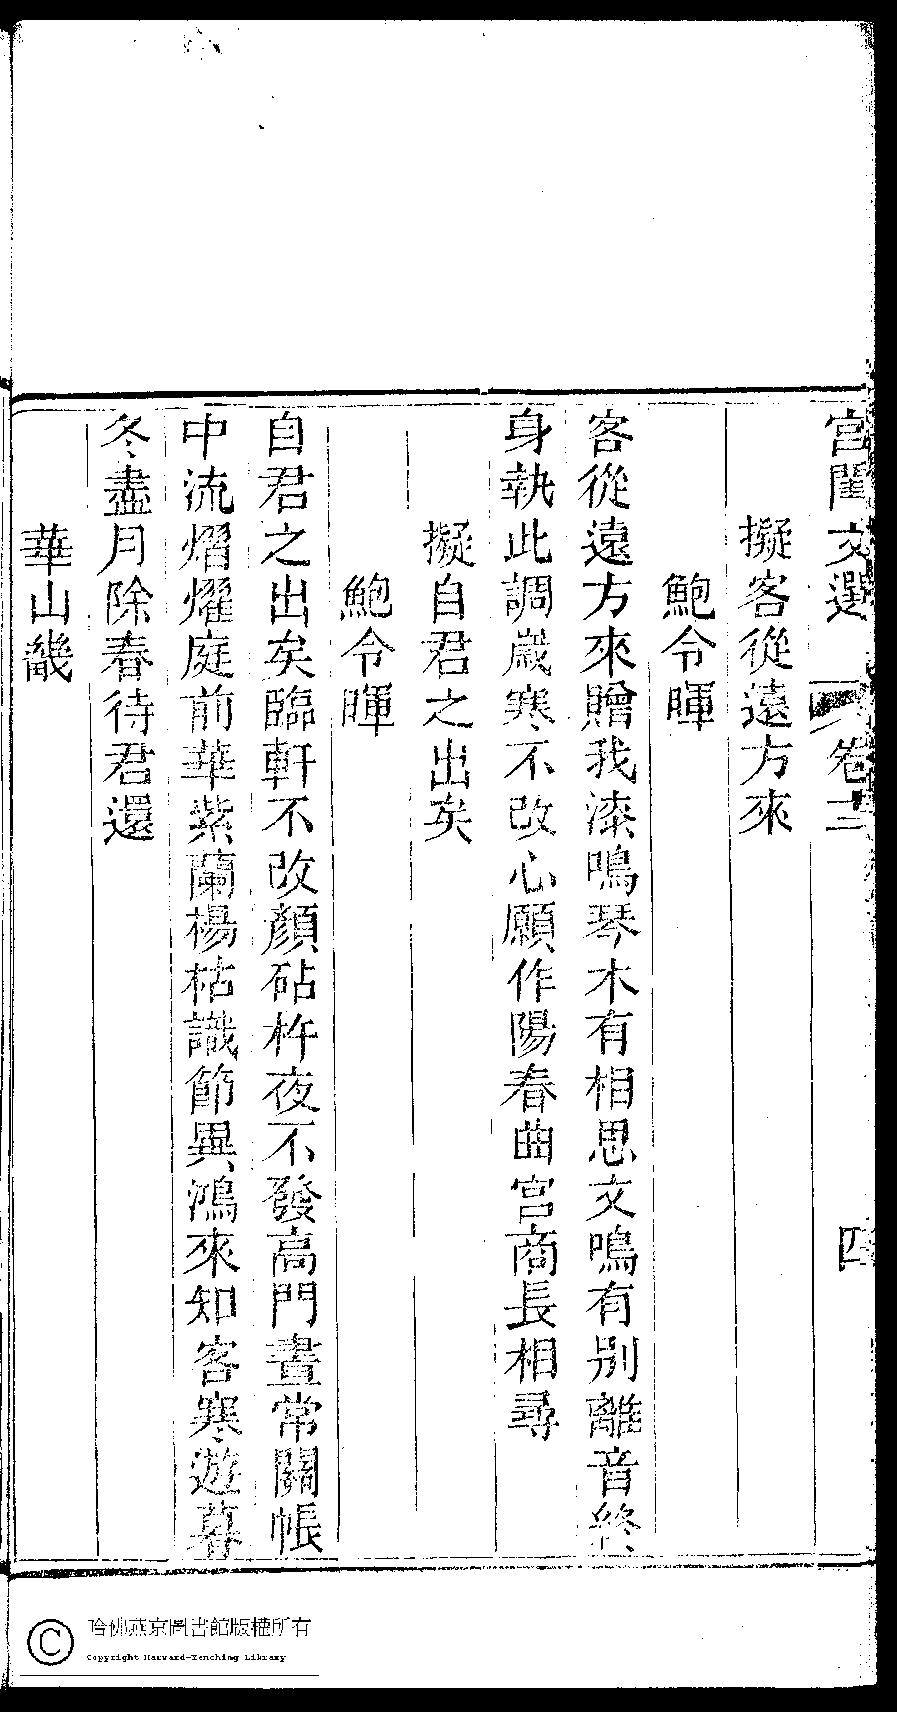 宮閨文選 卷十二 四
擬客從遠方來
鮑令暉
客從遠方來贈我漆鳴琴木有相思文鳴有別離音終
身執此調歲寒不改心願作陽春曲宮商長相尋
擬自君之出矣
鮑令暉
自君之出矣臨軒不改顏砧杵夜不發高門晝常關帳
中流熠燿庭前華紫蘭楊枯識節異鴻來知客寒遊暮
冬盡月除春待君還
華山畿
哈佛燕京圖書館版權所有
Copyright Harvard-Yenching Library